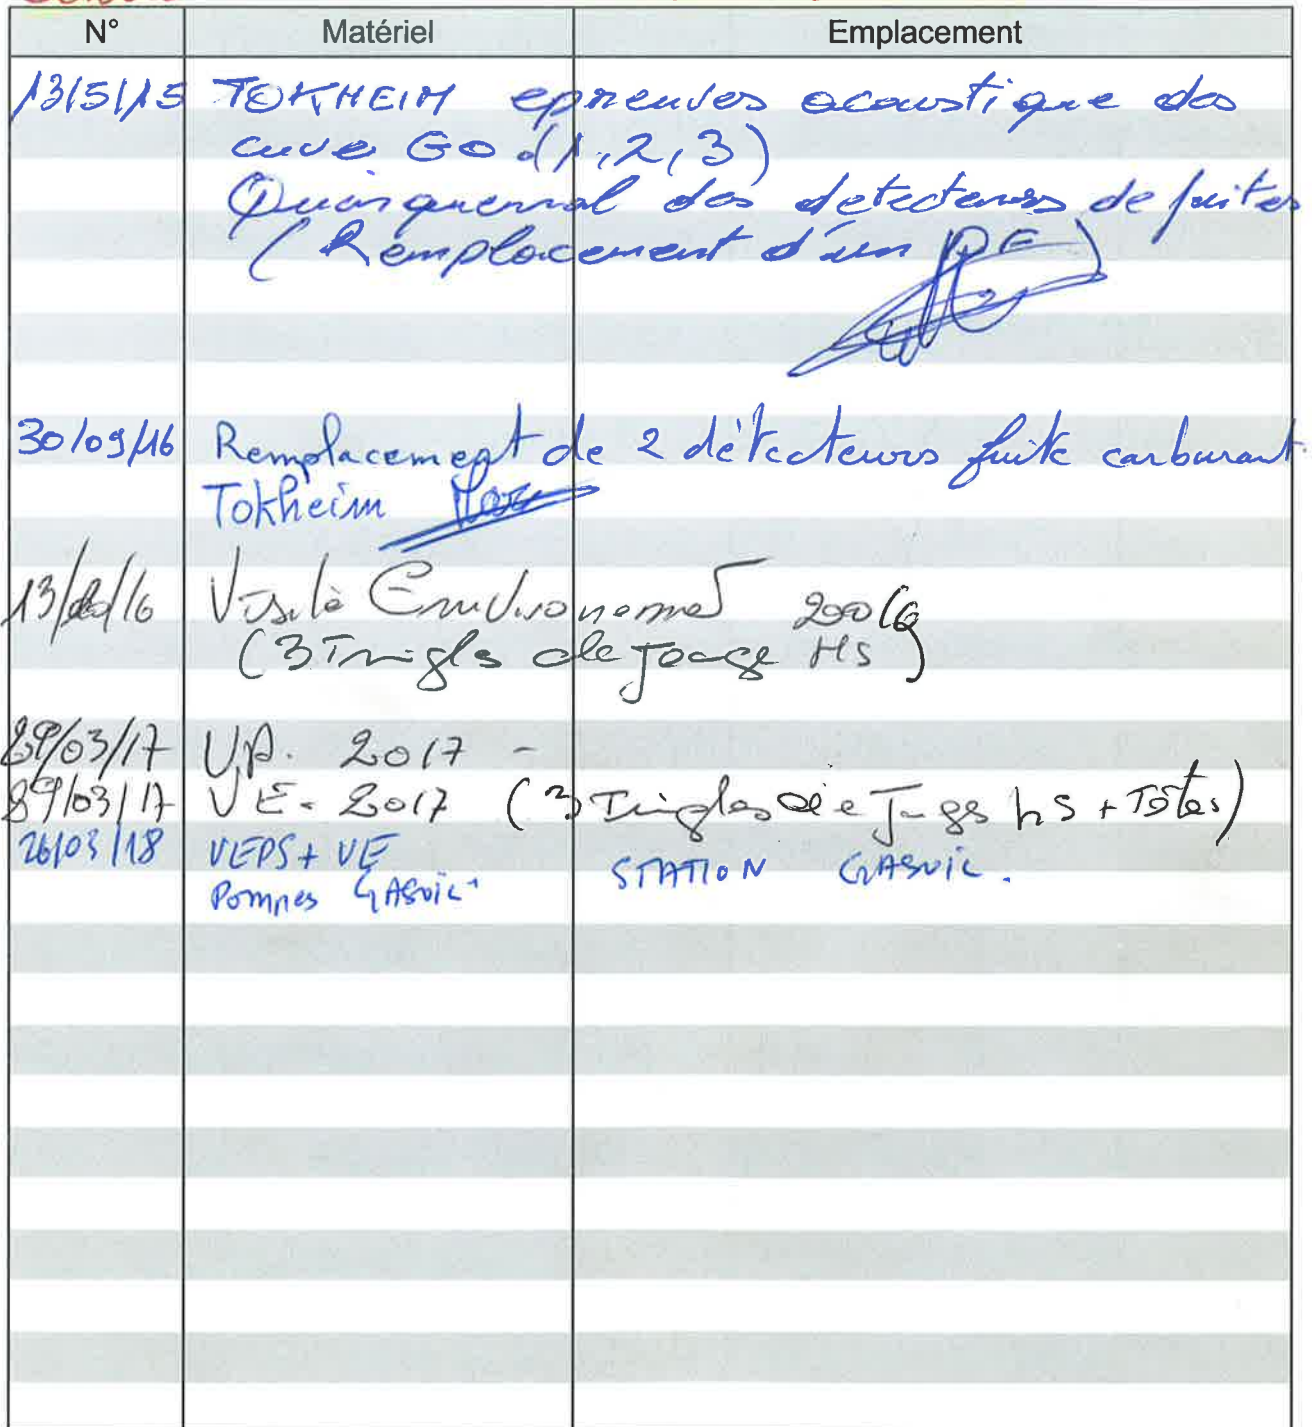 N° Matériel Emplacement
13/5/15 TOKHEIM epreuves acoustique des
cuve GO (1,2,3)
Quinquennal des detecteurs de fuites
(Remplacement d'un DF)
30/09/16 Remplacement de 2 détecteurs fuite carburant.
Tokheim
Visite Environnemet
(3 Tringls de Jauge HS)
29/03/17 V.P. 2017 -
29/03/17 VE - 2017 (3 Tingles de Jauge hs + Têtes)
26/03/18 VEPS + VE STATION GASOIL.
Pompes GASOIL